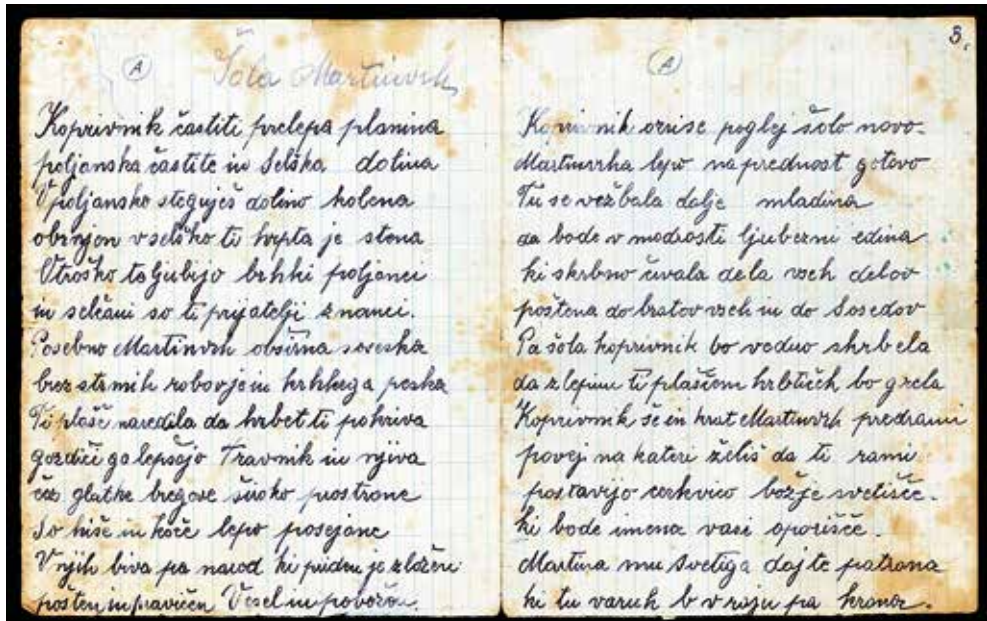 A
Šola Martinvrh
Koprivnik častiti prelepa planina
poljanska častite in Selška dolina
V poljansko steguješ dolino kolena
obrnjen v selško ti hrpta je stena
Otroško te ljubijo brhki poljanci
in selčani so ti prijatelji znanci.
Posebno Martinvrh obširna soseska
brez strmih robovje in krhkega peska
Ti plašč naredila da hrbet ti pokriva
gozdiči ga lepšajo Travnik in njiva
čez glatke bregove široko prostrane
So hiše in koče lepo posejane
V njih biva pa narod ki priden je zložen
pošten in pravičen Vesel in pobožen.
3.
A
Koprivnik ozrise poglej šolo novo.
Martinvrha lepo naprednost gotovo
Tu se vežbala dalje mladina
da bode v modrosti ljubezni edina
ki skrbno čuvala dela vseh delov
poštena do bratov vseh in do Sosedov
Pa šola koprivnik bo vedno skrbela
da z lepim ti plaščem hrbtiček bo grela
Koprivnik še en krat Martinvrh predrami
povej na kateri želiš da ti rami
postavijo cerkvico božje svetišče.
ki bode imena vasi oporišče.
Martina mu Svetiga dajte patrona
ki tu varuh b v raju pa krona.